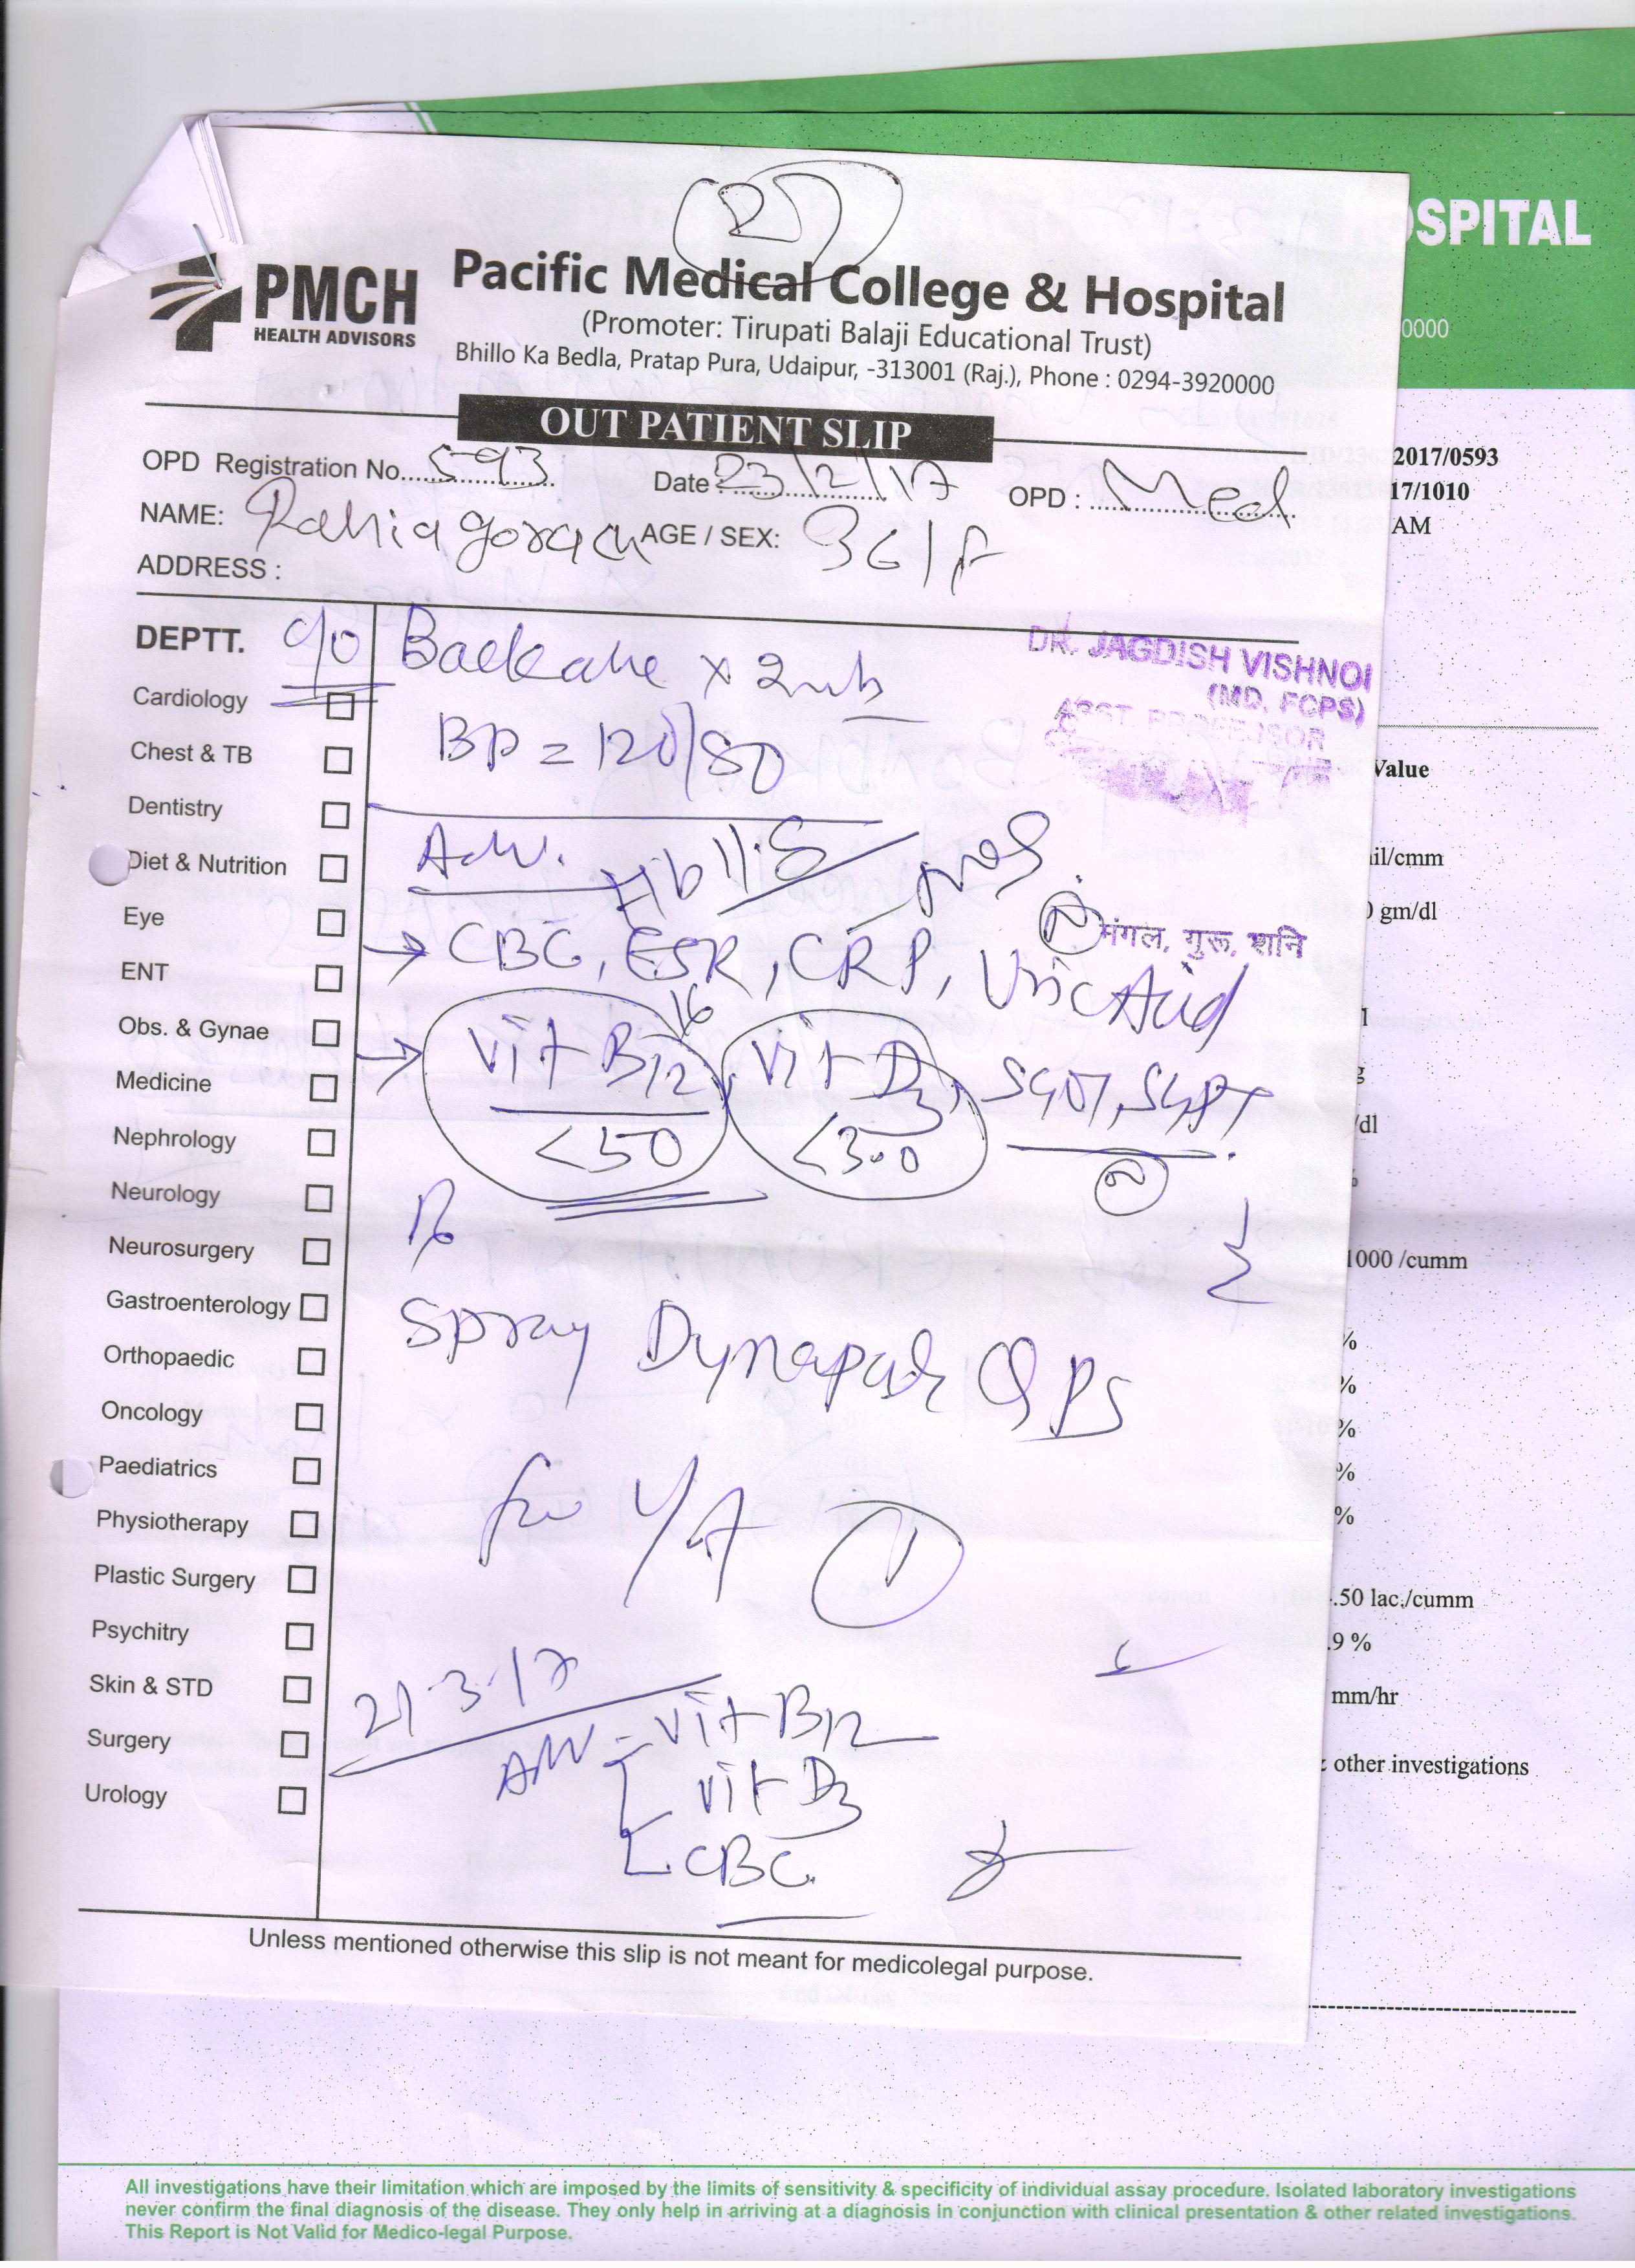 OSPITAL
0000
2017/0593
17/1010
AM
Value
mil/cmm
0 gm/dl
/dl
1000 /cumm
%
%
%
%
%
.50 lac./cumm
.9 %
mm/hr
other investigations
PMCH
HEALTH ADVISORS
Pacific Medical College & Hospital
(Promoter: Tirupati Balaji Educational Trust)
Bhillo Ka Bedla, Pratap Pura, Udaipur, -313001 (Raj.), Phone : 0294-3920000
OUT PATIENT SLIP
OPD Registration No. 593 Date : 23/2/17 OPD : Med
NAME: AGE / SEX: 36/F
ADDRESS :
DR. JAGDISH VISHNOI
(MD, FCPS)
ASST. PROFESSOR
मंगल, गुरू, शनि
DEPTT.
Cardiology
Chest & TB
Dentistry
Diet & Nutrition
Eye
ENT
Obs. & Gynae
Medicine
Nephrology
Neurology
Neurosurgery
Gastroenterology
Orthopaedic
Oncology
Paediatrics
Physiotherapy
Plastic Surgery
Psychitry
Skin & STD
Surgery
Urology
c/o Backache x 2
BP = 120/80
Adv.
Hb 11.8 neg
→ CBC, ESR, CRP, Uric Acid
→ Vit B12, Vit D3, SGOT, SGPT
<50 <3.0
Rx
Spray Dynapar QPS
for L/A 1
21-3-17
Adv - Vit B12
Vit D3
CBC
Unless mentioned otherwise this slip is not meant for medicolegal purpose.
All investigations have their limitation which are imposed by the limits of sensitivity & specificity of individual assay procedure. Isolated laboratory investigations
never confirm the final diagnosis of the disease. They only help in arriving at a diagnosis in conjunction with clinical presentation & other related investigations.
This Report is Not Valid for Medico-legal Purpose.